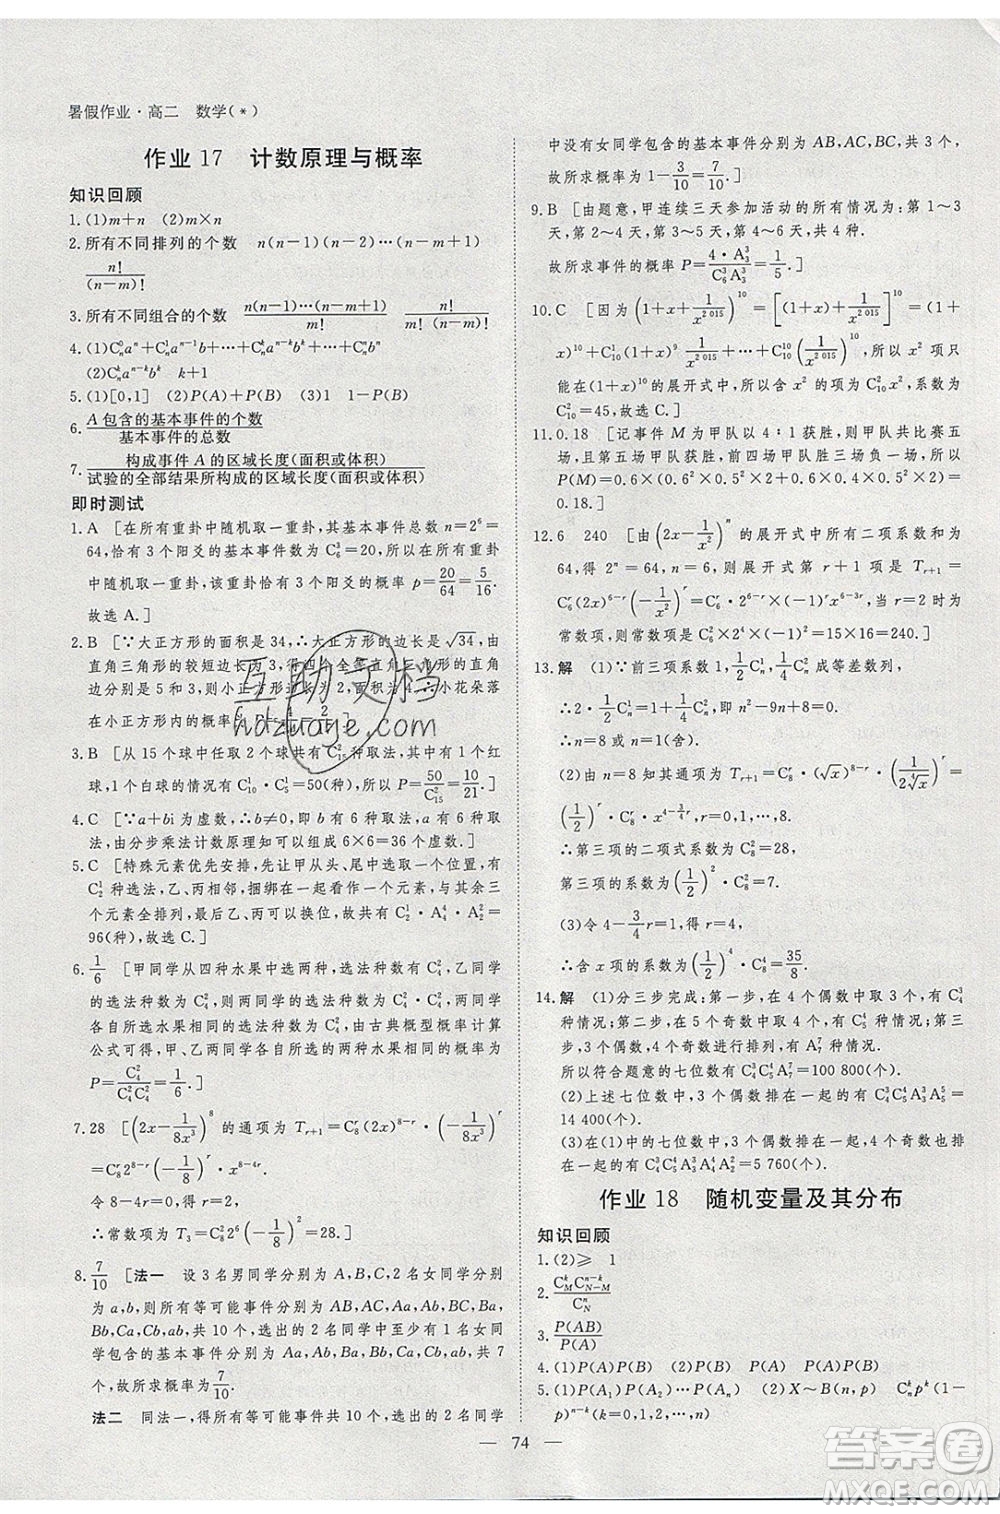 暑假作业·高二 数学(*)
作业 17 计数原理与概率
知识回顾
1.(1)m+n (2)m×n
2.所有不同排列的个数 n(n-1)(n-2)…(n-m+1)
n!/(n-m)!
3.所有不同组合的个数 n(n-1)(n-2)…(n-m+1)/m! n!/(m!(n-m)!)
4.(1)C_n^0a^n+C_n^1a^{n-1}b+…+C_n^ka^{n-k}b^k+…+C_n^nb^n
(2)C_n^ka^{n-k}b^k k+1
5.(1)[0,1] (2)P(A)+P(B) (3)1 1-P(B)
6.A包含的基本事件的个数/基本事件的总数
7.构成事件A的区域长度(面积或体积)/试验的全部结果所构成的区域长度(面积或体积)
即时测试
1.A [在所有重卦中随机取一重卦,其基本事件总数 n=2^6=
64,恰有 3 个阳爻的基本事件数为 C_6^3=20,所以在所有重卦
中随机取一重卦,恰有 3 个阳爻的概率 p=20/64=5/16.
故选 A.]
2.B [∵大正方形的面积是 34,∴大正方形的边长是√34,由
直角三角形的较短边长为 3,得四个全等直角三角形的直角
边分别是 5 和 3,则小正方形边长为 2,面积为 4.∴小花朵落
在小正方形内的概率
3.B [从 15 个球中任取 2 个球共有 C_15^2 种取法,其中有 1 个红
球,1 个白球的情况有 C_10^1·C_5^1=50(种),所以 P=50/C_15^2=10/21.]
4.C [∵a+bi 为虚数,∴b≠0,即 b 有 6 种取法,a 有 6 种取
法,由分步乘法计数原理知可以组成 6×6=36 个虚数.]
5.C [特殊元素优先安排,先让甲从头、尾中选取一个位置,有
C_2^1 种选法,乙、丙相邻,捆绑在一起看作一个元素,与其余三个
元素全排列,最后乙、丙可以换位,故共有 C_2^1·A_4^4·A_2^2=
96(种),故选 C.]
6.1/6 [甲同学从四种水果中选两种,选法种数为 C_4^2,乙同学
的选法种数为 C_4^2,则两同学的选法种数为 C_4^2·C_4^2,两同学
相同的选法种数为 C_4^2,由古典概型概率计算
公式可得,甲、乙两同学各自所选的两种水果相同的概率为
P=C_4^2/(C_4^2C_4^2)=1/6.]
7.28 [(2x-1/8x^3)^8 的通项为 T_{r+1}=C_8^r(2x)^{8-r}(-1/8x^3)^r
=C_8^r2^{8-r}(-1/8)^r x^{8-4r}.
令 8-4r=0,得 r=2,
∴常数项为 T_3=C_8^2 2^6(-1/8)^2=28.]
8.7/10 [法一 设 3 名男同学分别为 A,B,C,2 名女同学分别为
a,b,则所有等可能事件分别为 AB,AC,Aa,Ab,BC,Ba,
Bb,Ca,Cb,ab,共 10 个,选出的 2 名同学中至少有 1 名女同学
包含的基本事件分别为 Aa,Ab,Ba,Bb,Ca,Cb,ab,共 7
个,故所求概率为 7/10.
法二 同法一,得所有等可能事件共 10 个,选出的 2 名同学
中没有女同学包含的基本事件分别为 AB,AC,BC,共 3 个,
故所求概率为 1-3/10=7/10.]
9.B [由题意,甲连续三天参加活动的所有情况为:第 1~3
天,第 2~4 天,第 3~5 天,第 4~6 天,共 4 种.
故所求事件的概率 P=4·A_3^3/(C_6^3A_3^3)=1/5.]
10.C [因为(1+x+1/x^{2 015})^10=[(1+x)+1/x^{2 015}]^10=(1+
x)^10+C_10^1(1+x)^9 1/x^{2 015}+…+C_10^10(1/x^{2 015})^10,所以 x^2 项只
能在(1+x)^10 的展开式中,所以含 x^2 的项为 C_10^2x^2,系数为
C_10^2=45,故选 C.]
11.0.18 [记事件 M 为甲队以 4∶1 获胜,则甲队共比赛五
场,且第五场甲队获胜,前四场甲队胜三场负一场,所以
P(M)=0.6×(0.6^2×0.5^2×2+0.6×0.4×0.5^2×2)=
0.18.]
12.6 240 [由(2x-1/x^2)^n 的展开式中所有二项式系数和为
64,得 2^n=64,n=6.∴展开式中第 r+1 项是 T_{r+1}=
C_6^r(2x)^{6-r}(-1/x^2)^r=C_6^r·2^{6-r}·(-1)^r x^{6-3r},当 r=2 时为
常数项,则常数项是 C_6^2×2^4×(-1)^2=15×16=240.]
13.解 (1)∵前三项系数 1,1/2C_n^1,1/4C_n^2 成等差数列,
∴2·1/2C_n^1=1+1/4C_n^2,即 n^2-9n+8=0.
∴n=8 或 n=1(舍).
(2)由 n=8 知其通项为 T_{r+1}=C_8^r·(√x)^{8-r}·(1/(2∜x))^r
=(1/2)^r·C_8^r·x^{4-3/4r},r=0,1,…,8.
∴第三项的二项式系数为 C_8^2=28.
第三项的系数为(1/2)^2·C_8^2=7.
(3)令 4-3/4r=1,得 r=4,
∴含 x 项的系数为(1/2)^4·C_8^4=35/8.
14.解 (1)分三步完成:第一步,在 4 个偶数中取 3 个,有 C_4^3
种情况;第二步,在 5 个奇数中取 4 个,有 C_5^4 种情况;第三
步,3 个偶数,4 个奇数进行排列,有 A_7^7 种情况.
所以符合题意的七位数有 C_4^3C_5^4A_7^7=100 800(个).
(2)上述七位数中,3 个偶数排在一起的有 C_4^3C_5^4A_5^5A_3^3=
14 400(个).
(3)在(1)中的七位数中,3 个偶数排在一起,4 个奇数也排
在一起的有 C_4^3C_5^4A_3^3A_4^4A_2^2=5 760(个).
作业 18 随机变量及其分布
知识回顾
1.(2)≥ 1
2.C_M^kC_{N-M}^{n-k}/C_N^n
3.P(AB)/P(A)
4.(1)P(A)P(B) (2)P(B) P(A) P(A)P(B)
5.(1)P(A_1)P(A_2)…P(A_n) (2)X~B(n,p) C_n^kp^k(1-
p)^{n-k}(k=0,1,2,…,n)
— 74 —
互助文档
hdzuoye.com
答案圈
MXQE.COM